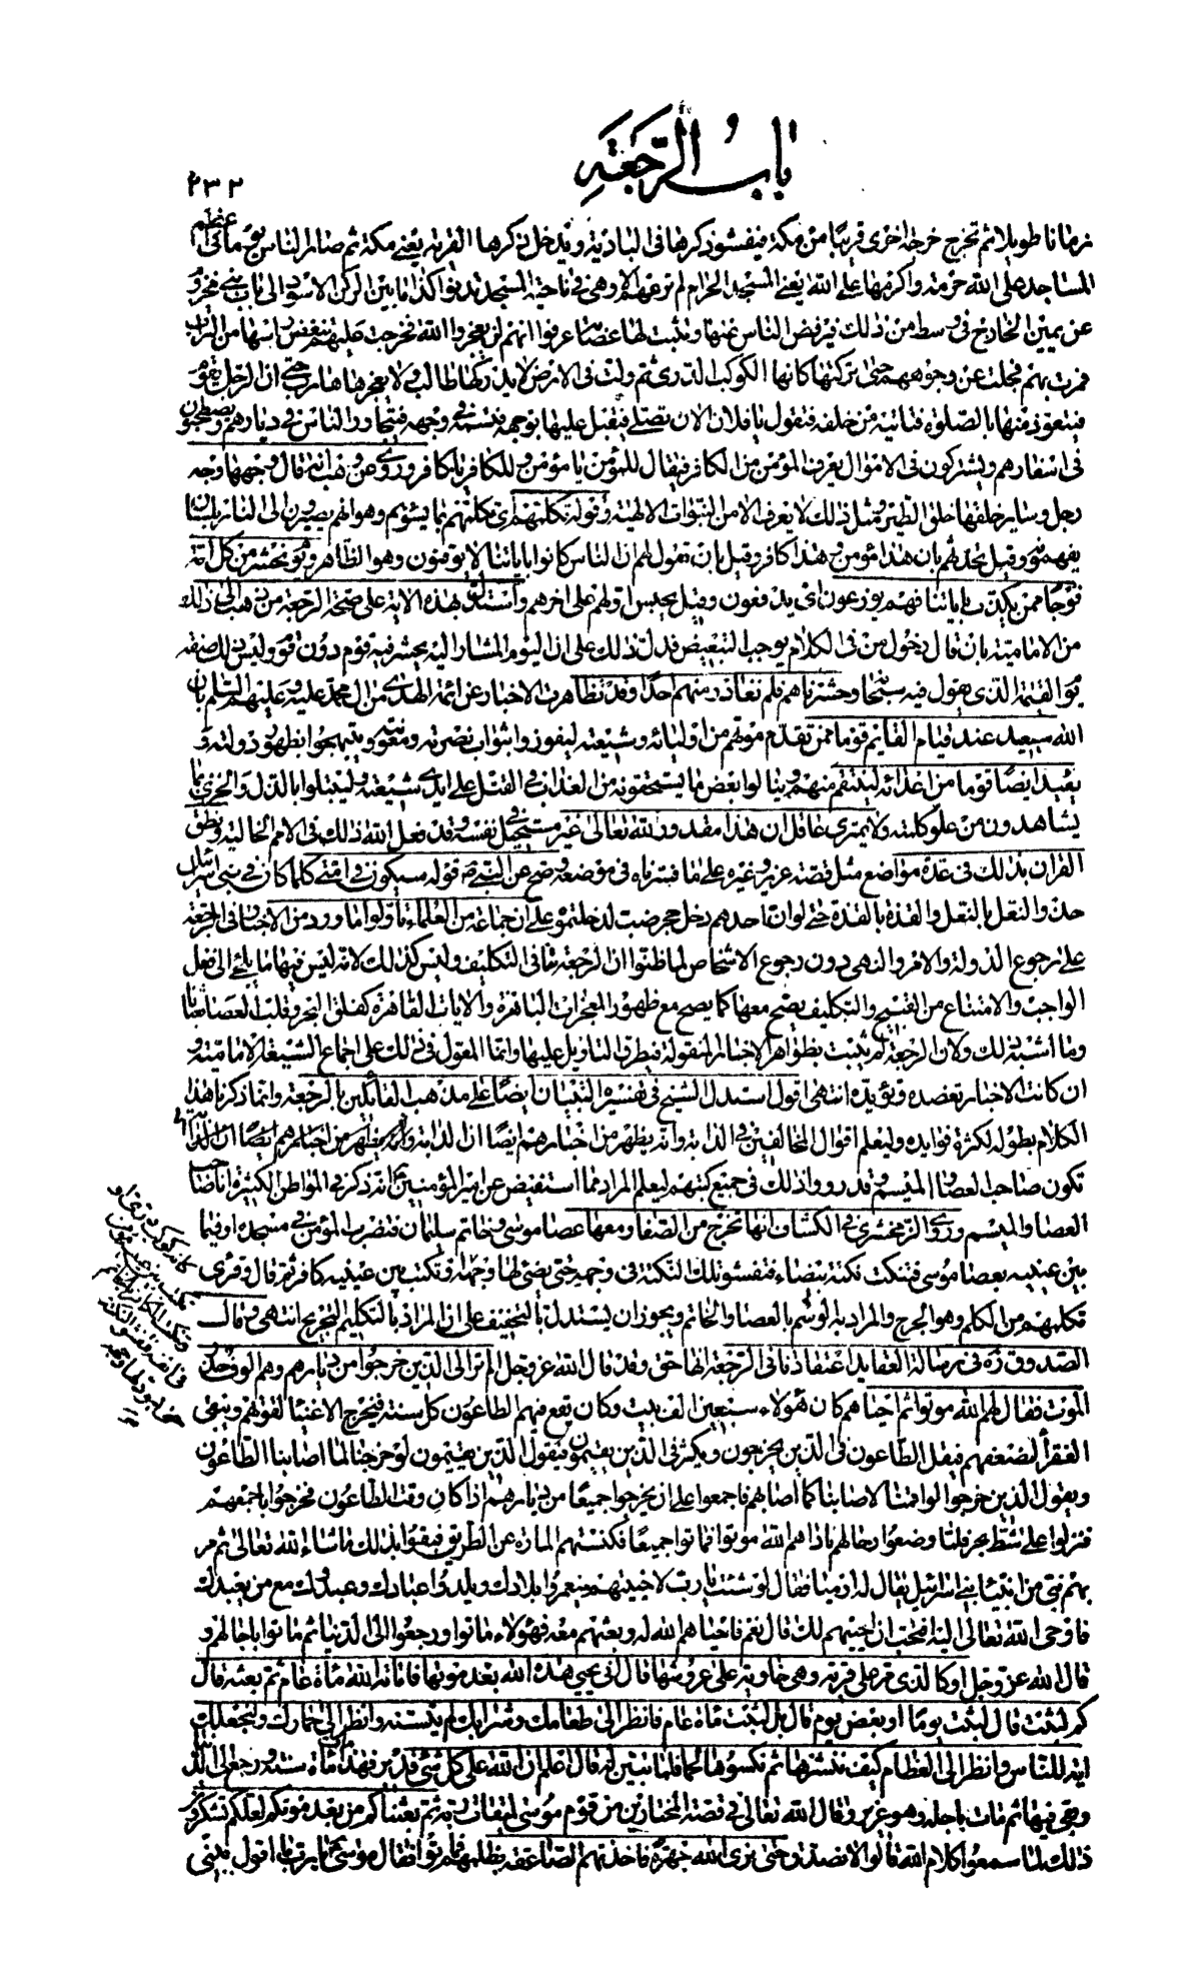 باب الرجعة
٢٣٢
زمانا طويلا ثم تخرج خرجة اخرى قريبًا من مكة فيفشو ذكرها فى البادية ويدخل ذكرها القرية يعنى مكة ثم صار الناس يوما فى اعظم
المساجد على الله حرمة واكرمها على الله يعنى المسجد الحرام لم ترعهم الا وهى فى ناحية المسجد تدنو كذا ما بين الركن الاسود الى باب بنى مخزوم
عن يمين الخارج فى وسط من ذلك فيرفض الناس عنها وتثبت لها عصابة عرفوا انهم لن يعجزوا الله فخرجت عليهم تنفض راسها من التراب
فمرت بهم فجلت عن وجوههم حتى تركتها كانها الكوكب الدرى ثم ولت فى الارض لا يدركها طالب ولا يعجزها هارب حتى ان الرجل يقوم
فيتعوذ منها بالصلوة فتاتيه من خلفه فتقول يا فلان الان تصلى فيقبل عليها بوجهه فتسمه فى وجهه فيتجاور الناس فى ديارهم ويصطحبون
فى اسفارهم ويشتركون فى الاموال يعرف المؤمن من الكافر فيقال للمؤمن يا مؤمن وللكافر يا كافر وروى عن وهب انه قال وجهها وجه
رجل وساير خلقها خلق الطير ومثل ذلك لا يعرف الا من النبوات الالهية وقوله تكلمهم اى تكلمهم بما يسوئهم وهو انهم يصيرون الى النار بلسان
يفهمونه وقيل تحدثهم بان هذا مؤمن وهذا كافر وقيل بان تقول لهم ان الناس كانوا باياتنا لا يوقنون وهو الظاهر ويوم نحشر من كل امة
فوجا ممن يكذب باياتنا فهم يوزعون اى يدفعون وقيل يحبس اولهم على اخرهم واستدل بهذه الاية على صحة الرجعة من ذهب الى ذلك
من الامامية بان قال دخول من فى الكلام يوجب التبعيض فدل ذلك على ان اليوم المشار اليه يحشر فيه قوم دون قوم وليس ذلك صفة
يوم القيمة الذى يقول فيه سبحانه وحشرناهم فلم نغادر منهم احدا وقد تظاهرت الاخبار عن ائمة الهدى من ال محمد عليه وعليهم السلم بان
الله سيعيد عند قيام القائم قوما ممن تقدم موتهم من اوليائه وشيعته ليفوزوا بثواب نصرته ومعونته ويبتهجوا بظهور دولته و
يعيد ايضا قوما من اعدائه لينتقم منهم وينالوا بعض ما يستحقونه من العذاب فى القتل على ايدى شيعته وليبتلوا بالذل والخزى بما
يشاهدون من علو كلمته ولا يمترى عاقل ان هذا مقدور لله تعالى غير مستحيل فى نفسه وقد فعل الله ذلك فى الامم الخالية ونطق
القران بذلك فى عدة مواضع مثل قصة عزير وغيره على ما فسرناه فى موضعه وصح عن النبى ص قوله سيكون فى امتى كلما كان فى بنى اسرائيل
حذو النعل بالنعل والقذة بالقذة حتى لو ان احدهم دخل جحر ضب لدخلتموه على ان جماعة من العلماء تاولوا ما ورد من الاخبار فى الرجعة
على رجوع الدولة والامر والنهى دون رجوع الاشخاص لما ظنوا ان الرجعة تنافى التكليف وليس كذلك لانه ليس فيها ما يلجئ الى فعل
الواجب والامتناع من القبيح والتكليف يصح معها كما يصح مع ظهور المعجزات الباهرة والايات القاهرة كفلق البحر وقلب العصا ثعبانا
وما اشبه ذلك ولان الرجعة لم تثبت بظواهر الاخبار المنقولة فيطرق التاويل عليها وانما المعول فى ذلك على اجماع الشيعة الامامية و
ان كانت الاخبار تعضده وتؤيده انتهى اقول استدل الشيخ فى تفسيره التبيان ايضا على مذهب القائلين بالرجعة وانما ذكرنا هذا
الكلام بطوله لكثرة فوايده وليعلم اقوال المخالفين فى الدابة وانه يظهر من اخبارهم ايضا ان الدابة
تكون صاحب العصا والميسم وقد رووا ذلك فى جميع كتبهم ليعلم المراد مما استفيض عن امير المؤمنين انه ذكر فى المواطن الكثيرة انا صاحب
العصا والميسم وروى الزمخشرى فى الكشاف انها تخرج من الصفا ومعها عصا موسى وخاتم سليمان فتضرب المؤمن فى مسجده او فيما
بين عينيه بعصا موسى فتنكت نكتة بيضاء فتفشو تلك النكتة فى وجهه حتى يضئ لها وجهه وتكتب بين عينيه كافر ثم قال وقرئ
تكلمهم من الكلم وهو الجرح والمراد به الوسم بالعصا والخاتم ويجوز ان يستدل بالتخفيف على ان المراد بالتكليم التجريح انتهى وقال
الصدوق ره فى رسالة العقايد اعتقادنا فى الرجعة انها حق وقد قال الله عز وجل الم تر الى الذين خرجوا من ديارهم وهم الوف حذر
الموت فقال لهم الله موتوا ثم احياهم كان هؤلاء سبعين الف بيت وكان يقع فيهم الطاعون كل سنة فيخرج الاغنيا لقوتهم ويبقى
الفقراء لضعفهم فيقل الطاعون فى الذين يخرجون ويكثر فى الذين يقيمون فيقول الذين يقيمون لو خرجنا لما اصابنا الطاعون
ويقول الذين خرجوا لو اقمنا لاصابنا كما اصابهم فاجمعوا على ان يخرجوا جميعا من ديارهم اذا كان وقت الطاعون فخرجوا باجمعهم
فنزلوا على شط بحر فلما وضعوا رحالهم ناداهم الله موتوا فماتوا جميعا فكنستهم المارة عن الطريق فبقوا بذلك ما شاء الله تعالى ثم مر
بهم نبى من انبياء بنى اسرائيل يقال له ارميا فقال لو شئت يا رب لاحييتهم فيعمروا بلادك ويلدوا عبادك وعبدوك مع من يعبدك
فاوحى الله تعالى اليه افتحب ان احييهم لك قال نعم فاحياهم الله له وبعثهم معه فهؤلاء ماتوا ورجعوا الى الدنيا ثم ماتوا باجالهم و
قال الله عز وجل او كالذى مر على قرية وهى خاوية على عروشها قال انى يحيى هذه الله بعد موتها فاماته الله مائة عام ثم بعثه قال
كم لبثت قال لبثت يوما او بعض يوم قال بل لبثت مائة عام فانظر الى طعامك وشرابك لم يتسنه وانظر الى حمارك ولنجعلك
اية للناس وانظر الى العظام كيف ننشزها ثم نكسوها لحما فلما تبين له قال اعلم ان الله على كل شئ قدير فهذا مات مائة سنة ورجع الى الدنيا
وبقى فيها ثم مات باجله وهو عزير وقال الله تعالى فى قصة المختارين من قوم موسى لميقات ربه ثم بعثناكم من بعد موتكم لعلكم تشكرون
ذلك لما سمعوا كلام الله قالوا لا نصدق حتى نرى الله جهرة فاخذتهم الصاعقة بظلمهم فماتوا فقال موسى يا رب ما اقول لبنى